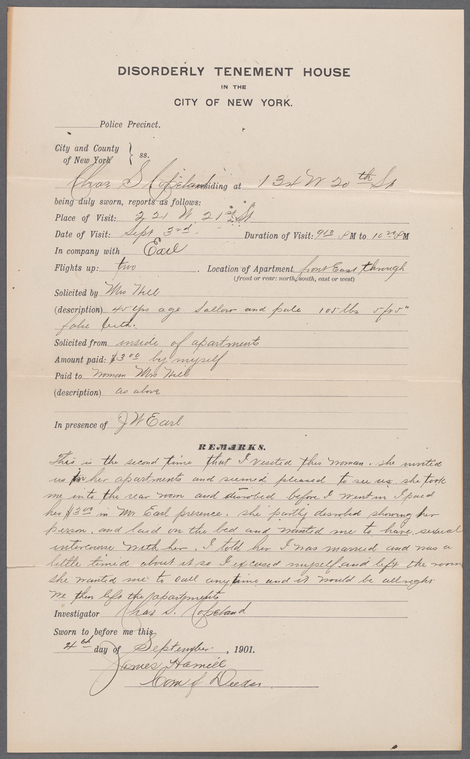 DISORDERLY TENEMENT HOUSE
IN THE
CITY OF NEW YORK.
Police Precinct.
City and County
of New York } ss.
Chas S Copeland residing at 134 W 20th St
being duly sworn, reports as follows:
Place of Visit: 221 W 21st St
Date of Visit: Sept 3rd Duration of Visit: PM to PM
In company with Earl
Flights up: two Location of Apartment front East, through
(front or rear: north, south, east or west)
Solicited by Mrs Hill
(description) 45 yrs age Sallow and pale 105 lbs 5 ft 5"
false teeth.
Solicited from inside of apartments
Amount paid: $3.00 by myself
Paid to woman Mrs Hill
(description) as above
In presence of J W Earl
REMARKS.
This is the second time that I visited this woman. she invited
us in her apartments and seemed pleased to see us she took
me into the rear room and disrobed before I went in I paid
her $3.00 in Mr Earl presence. she partly disrobed showing her
person. and laid on the bed and wanted me to have sexual
intercourse with her. I told her I was married and was a
little timid about it so I excused myself and left the room
she wanted me to call any time and it would be allright
we then left the apartments
Investigator Chas S. Copeland
Sworn to before me this
4th day of September, 1901.
James Hamill
Com of Deeds